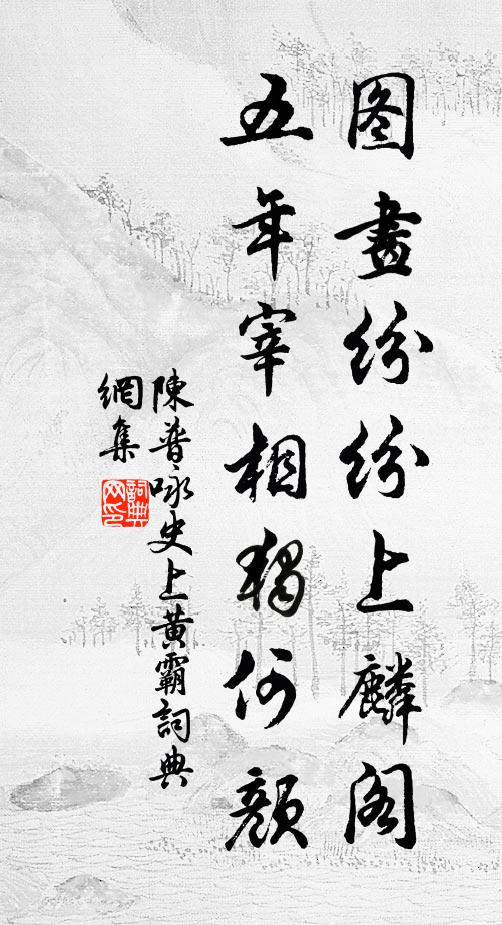 图畫紛紛上麟阁
五年宰相獨何顏
陳普咏史上黄霸詞典
網集
詞典
网印